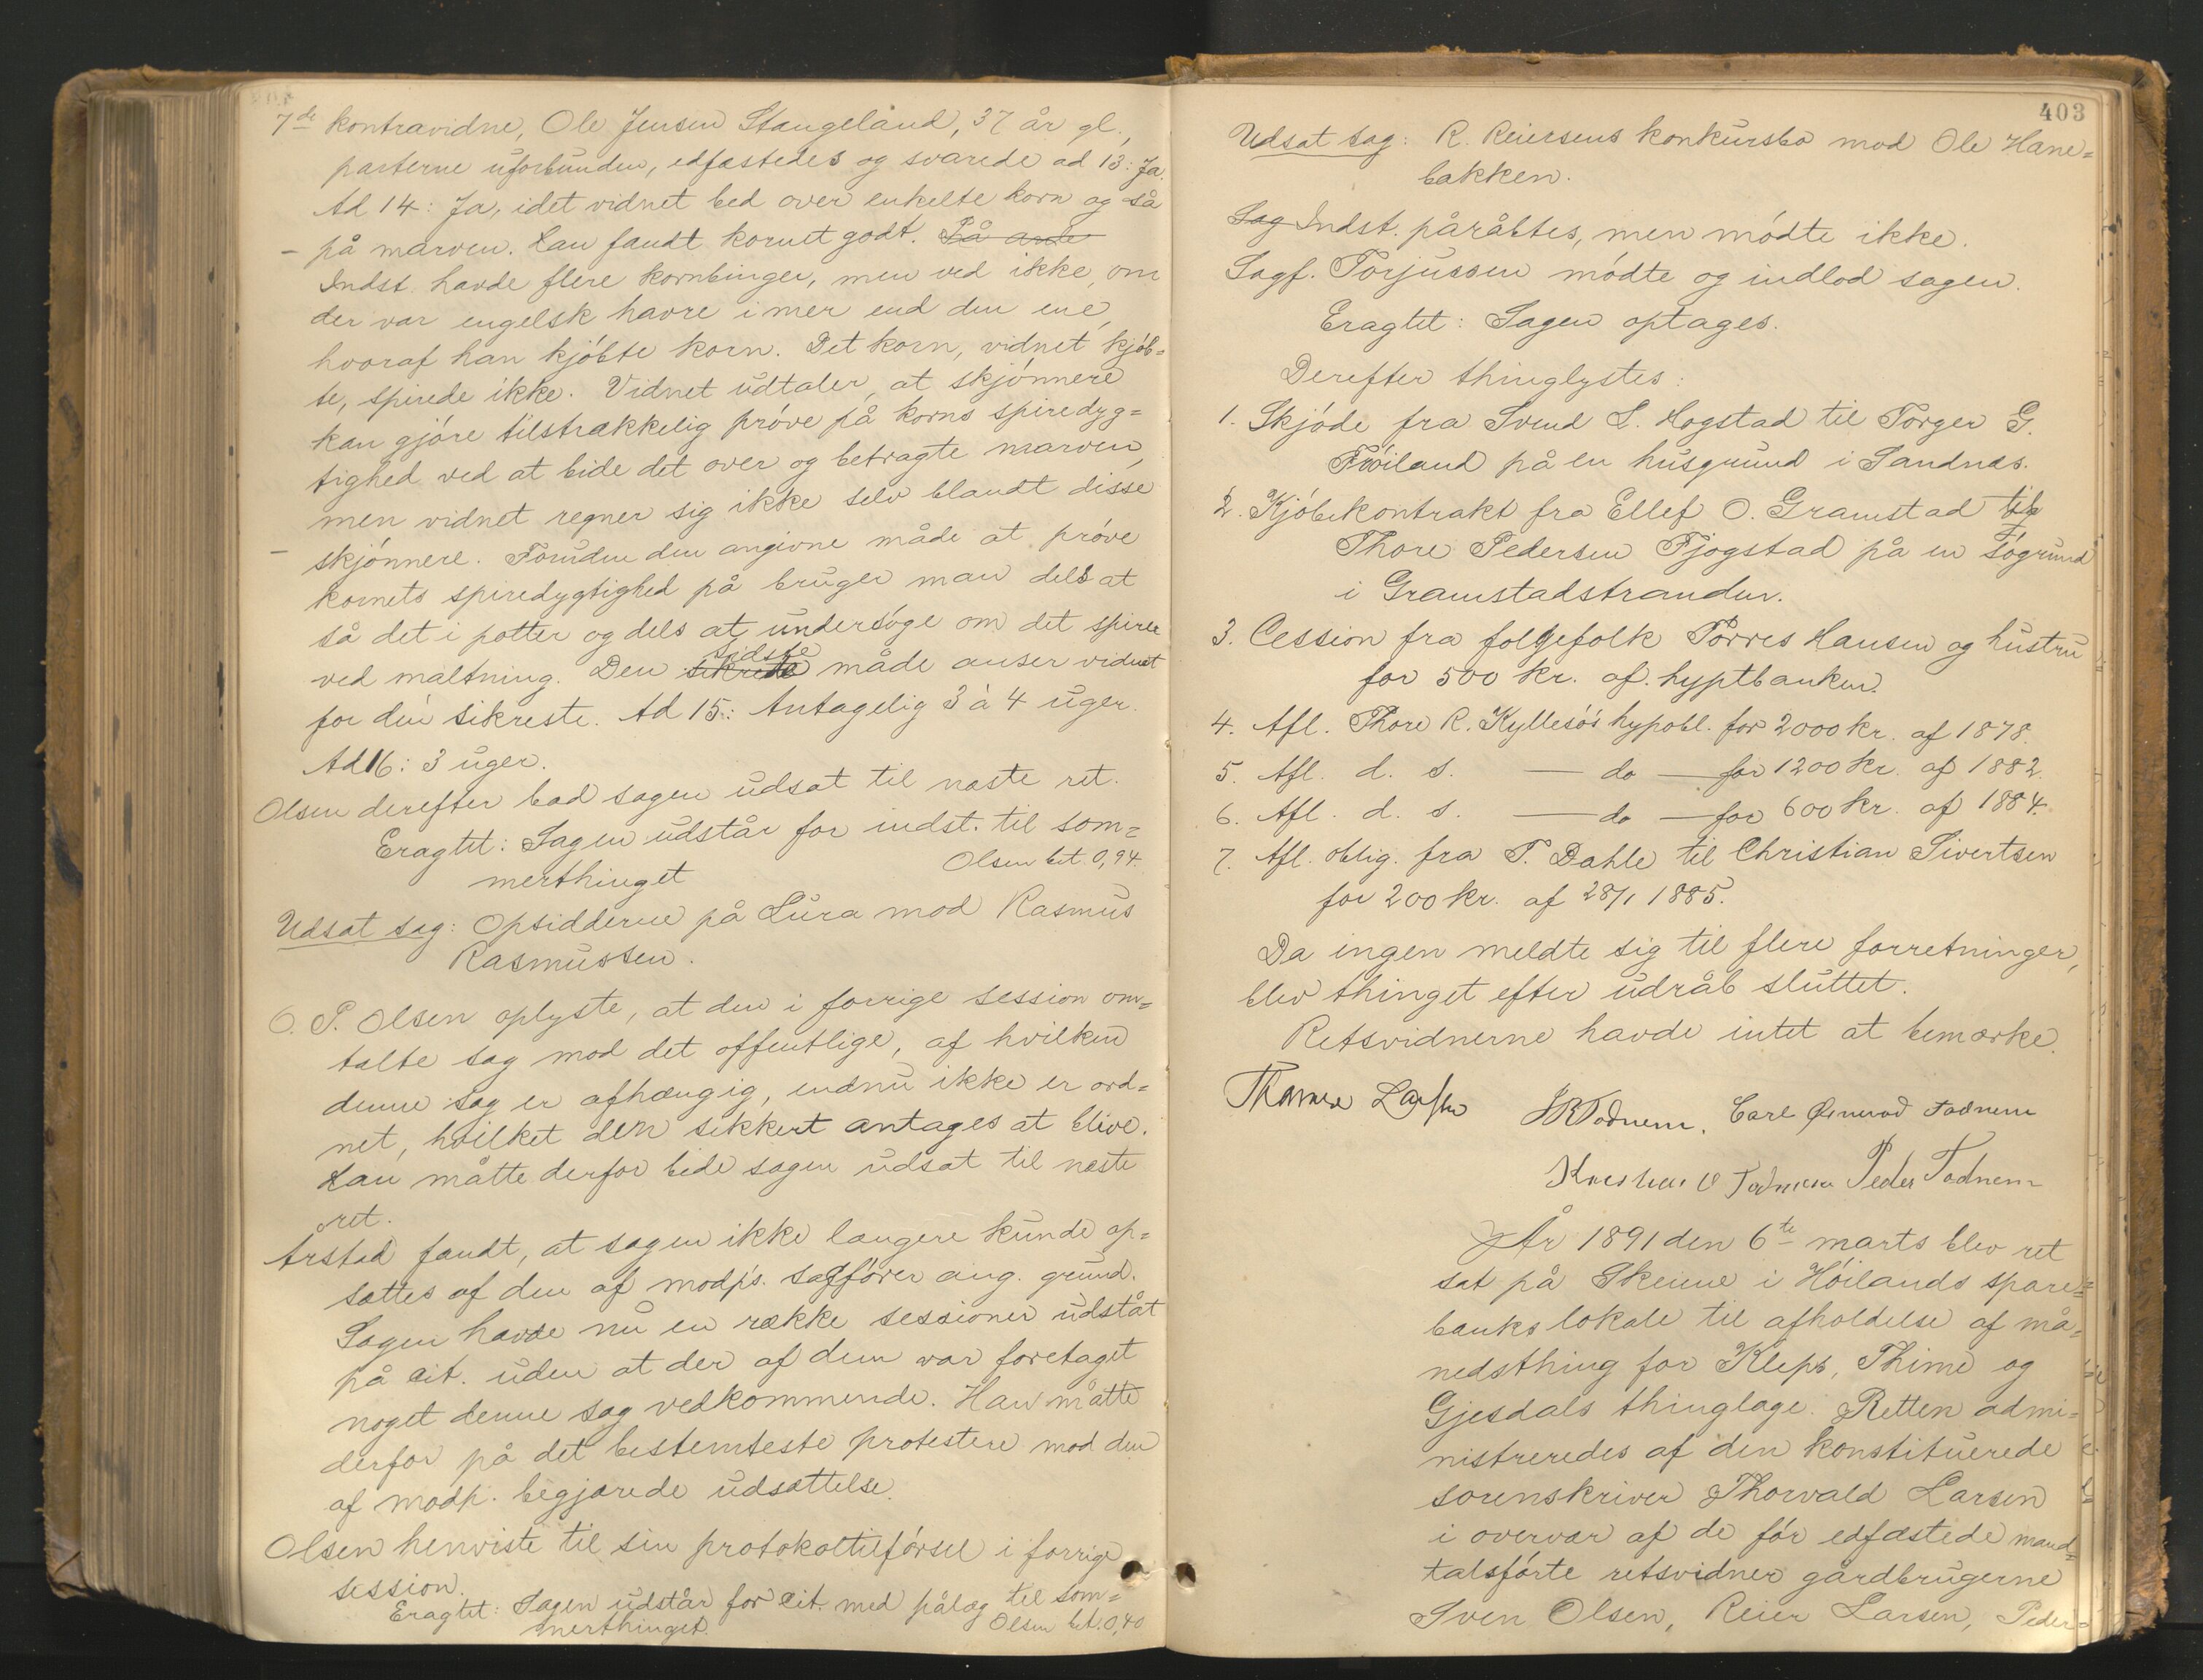 7de kontravidne, Ole Jensen Stangeland, 37 år gl.,
parterne uforbunden, edfæstedes og svarede ad 13: Ja.
Ad 14: Ja, idet vidnet bed over enkelte korn og så
på marven. Han fandt kornet godt. På ande
Indst. havde flere kornbinger, men ved ikke, om
der var engelsk havre i mer end den ene,
hvoraf han kjöbte korn. Det korn, vidnet kjöb=
te, spirede ikke. Vidnet udtaler, at skjönnere
kan gjöre tilstrækkelig pröve på korns spiredyg=
tighed ved at bide det over og betragte marven,
men vidnet regner sig ikke selv blandt disse
skjönnere. Foruden den angivne måde at pröve
kornets spiredygtighed på bruger man dels at
så det i potter og dels at undersöge om det spirer
sidste
ved maltning. Den sikrede måde anser vidnet
for den sikreste. Ad 15: Antagelig 3 à 4 uger.
Ad 16: 3 uger.
Olsen derefter bad sagen udsat til næste ret.
Eragtet: Sagen udstår for indst. til som=
merthinget
Olsen bet. 0,94.
Udsat sag: Opsidderne på Lura mod Rasmus
Rasmussen.
O. P. Olsen oplyste, at den i forrige session om=
talte sag mod det offentlige, af hvilken
denne sag er afhængig, endnu ikke er ord=
net, hvilket den sikkert antages at blive.
Han måtte derfor bede sagen udsat til næste
ret.
Årstad fandt, at sagen ikke længere kunde op=
sættes af den af modp's. sagförer ang. grund.
Sagen havde nu en række sessioner udstått
på cit. uden at der af dem var foretaget
noget denne sag vedkommende. Han måtte
derfor på det bestemteste protestere mod den
af modp. begjærede udsættelse.
Olsen henviste til sin protokoltilförsel i forrige
session.
Eragtet: Sagen udstår for cit. med pålæg til som=
merthinget.
Olsen bet. 0,40
403
Udsat sag: R. Reiersens konkursbo mod Ole Hane=
bakken.
Sag Indst. påråbtes, men mödte ikke.
Sagf. Torjussen mödte og indlod sagen.
Eragtet: Sagen optages.
Derefter thinglystes:
1. Skjöde fra Svend L. Hogstad til Torger G.
Fröiland på en husgrund i Sandnæs.
2. Kjöbekontrakt fra Ellef O. Gramstad til
Thore Pedersen Fjogstad på en sögrund
i Gramstadstranden.
3. Cession fra folgefolk Torres Hansen og hustru
for 500 kr. af hyptbanken.
4. Afl. Thore R. Kyllesö's hypobl. for 2000 kr. af 1878.
5. Afl. d. s. — do — for 1200 kr. af 1882.
6. Afl. d. s. — do — for 600 kr. af 1884.
7. Afl. oblig. fra T. Dahle til Christian Sivertsen
for 200 kr. af 28/1 1885.
Da ingen meldte sig til flere forretninger,
blev thinget efter udråb sluttet.
Retsvidnerne havde intet at bemærke.
Larsen Todnem. Carl Todnem
Todnem Peder Todnem
År 1891 den 6te marts blev ret
sat på Skeiene i Höilands spare=
banks lokale til afholdelse af må=
nedsthing for Kleps, Thime og
Gjesdals thinglage. Retten admi=
nistreredes af den konstituerede
sorenskriver Thorvald Larsen
i overvær af de för edfæstede mand=
talsförte retsvidner gårdbrugerne
Sven Olsen, Reier Larsen, Peder